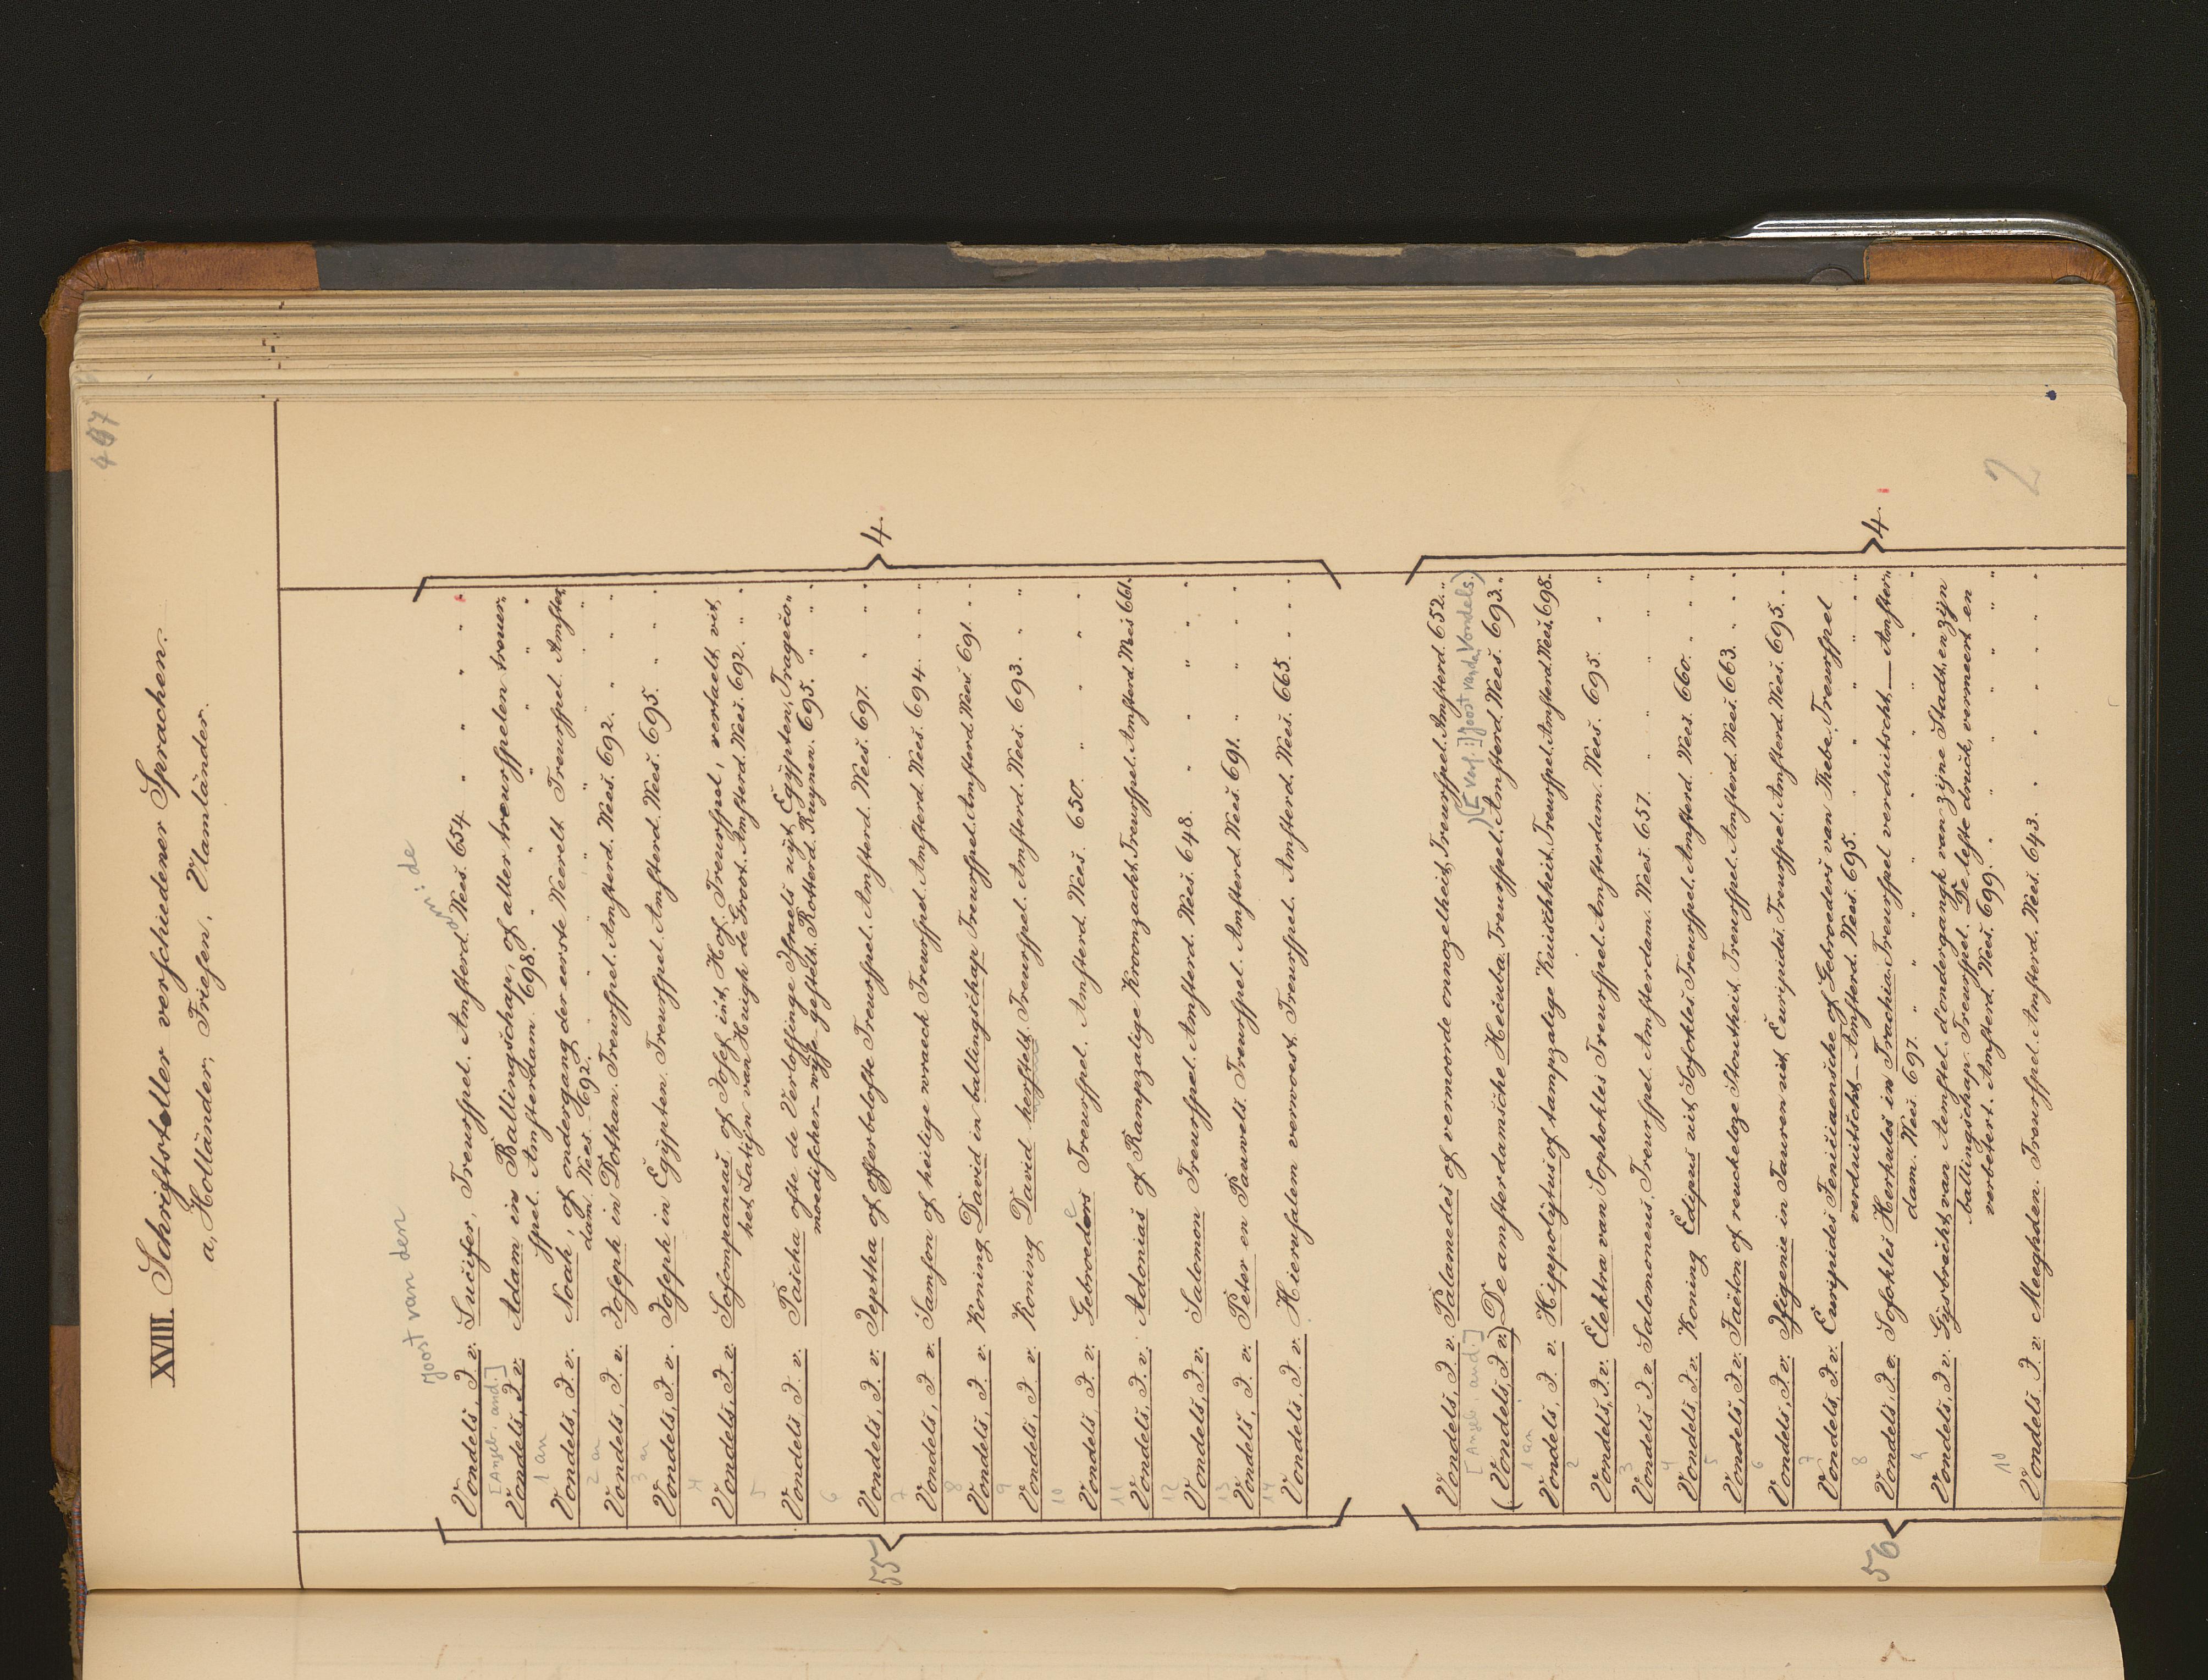 497
XVIII. Schriftsteller verschiedener Sprachen.
a, Holländer, Friesen, Vlamländer.
Joost van den
om: de
55
4.
Vondels, J. v. Lucifer, Treurspel. Amsterd. Wees. 654.
[Angeb. and.]
Vondels, J. v. Adam in Ballingschap, of aller treurspelen treuer„
spel. Amsterdam. 698.
1 an
Vondels, J. v. Noah, of ondergang der eerste Weerelt Treurspel. Amster„
dam. Wees. 692.
2 an
Vondels, J. v. Joseph in Dothan. Treurspel. Amsterd. Wees. 692.
3 an
Vondels, J. v. Joseph in Egypten. Treurspel. Amsterd. Wees. 695.
4
Vondels, J. v. Sofompaneas of Josef int Hof. Treurspel, vertaelt vit
het Latijn van Huigh de Groot. Amsterd. Wees. 692.
5
Vondels, J. v. Pascha ofte de Verlossinge Israels uijt Egypten, Trageco„
moedischer-wijse gestelt. Rotterd. Ruynen. 695.
6
Vondels, J. v. Jeptha of offerbelofte Treurspel. Amsterd. Wees. 697.
7
Vondels, J. v. Samson of heilige wraeck Treurspel. Amsterd. Wees. 694.
8
Vondels, J. v. Koning David in ballingschap Treurspel. Amsterd. Wees 691.
9
Vondels, J. v. Koning David herstelt. Treurspel. Amsterd. Wees. 693.
10
Vondels, J. v. Gebroeders Treurspel. Amsterd. Wees. 650.
11
Vondels, J. v. Adonias of Rampzalige Kroonzucht Treurspel. Amsterd. Wees 661.
12
Vondels, J. v. Salomon Treurspel. Amsterd. Wees. 648.
13
Vondels, J. v. Peter en Pauwels. Treurspel. Amsterd. Wees. 691.
14
Vondels, J. v. Hierusalem verwoest. Treurspel. Amsterd. Wees. 665.
56
4.
Vondels, J. v. Palamedes of vermoorde onnozelheit, Treurspel. Amsterd. 652.
[Angeb. and.] ) ([Verf.:] Joost van de Vondels.)
(Vondels, J. v.) De amsterdamsche Hecuba. Treurspel. Amsterd. Wees. 693.
1 an
Vondels, J. v. Hippolytus of rampzalige Kuischheit. Treurspel. Amsterd. Wees. 698.
2
Vondels, J. v. Elektra van Sophokles Treurspel. Amsterdam. Wees. 695.
3
Vondels, J. v. Salomoneus, Treurspel. Amsterdam. Wees. 657.
4
Vondels, J. v. Koning Edipus uit Sofokles Treurspel. Amsterd. Wees. 660.
5
Vondels, J. v. Faëton of reuckeloze Stoutheit. Treurspel. Amsterd. Wees. 663.
6
Vondels, J. v. Ifigenie in Tauren uit Euripides. Treurspel. Amsterd. Wees. 695.
7
Vondels, J. v. Euripides Feniciaensche of Gebroeders van Thebe, Treurspel
verduitscht. Amsterd. Wees. 695.
8
Vondels, J. v. Sofokles Herkules in Trachin. Treurspel verduitscht. — Amster„
dam. Wees. 697.
9
Vondels, J. v. Gysbrecht van Aemstel. d'ondergangk van zijne Stadt, en zijn
ballingschap. Treurspel. De leste druck, vermeert en
verbetert. Amsterd. Wees. 699.
10
Vondels, J. v. Maeghden. Treurspel. Amsterd. Wees. 643.
2